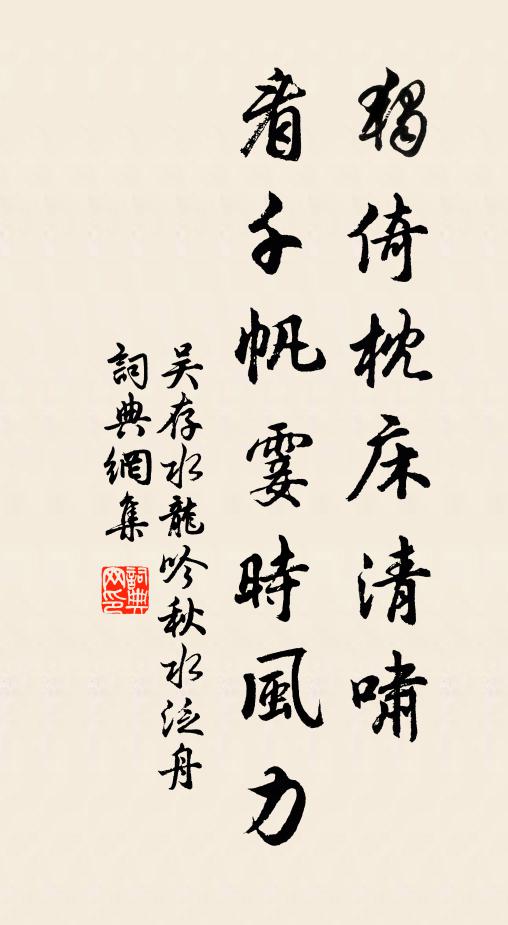 獨倚枕床清嘯
看千帆霎時風力
吴存水龍吟秋水泛舟
詞典網集
詞典
网印